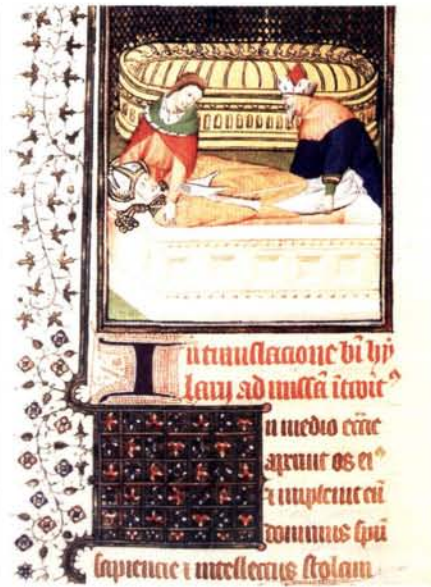 In translacione bi hy
larij ad missā itroit⁹
In medio eccie
aperuit os ei⁹
⁊ impleuit eū
dominus spū
sapiencie ⁊ intellectus stolam